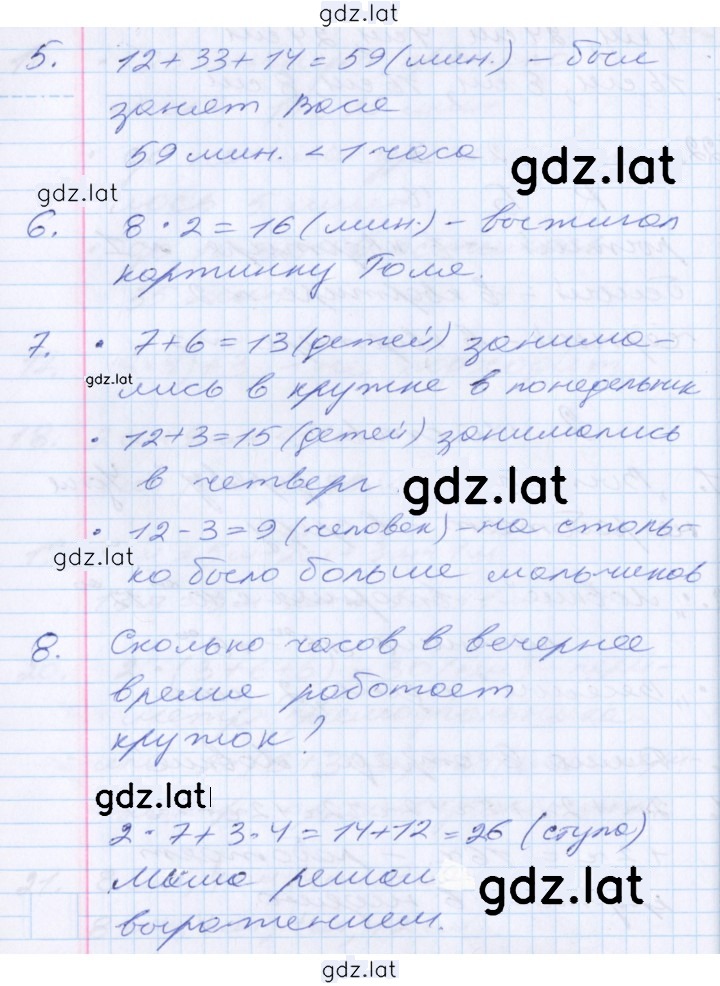 gdz.lat
5. 12+33+14=59 (мин.) – был
занят Вася
59 мин. < 1 часа
gdz.lat
gdz.lat
6. 8 · 2 = 16 (мин.) – выжигал
картинку Толя.
7. • 7+6=13 (детей) занима-
gdz.lat
лись в кружке в понедельник
• 12+3=15 (детей) занимались
в четверг.
gdz.lat
• 12-3=9 (человек) – на столь-
gdz.lat
ко было больше мальчиков
8. Сколько часов в вечернее
время работает
кружок?
gdz.lat
2·7+3·4=14+12=26 (стула)
Миша решал
gdz.lat
выражением.
gdz.lat